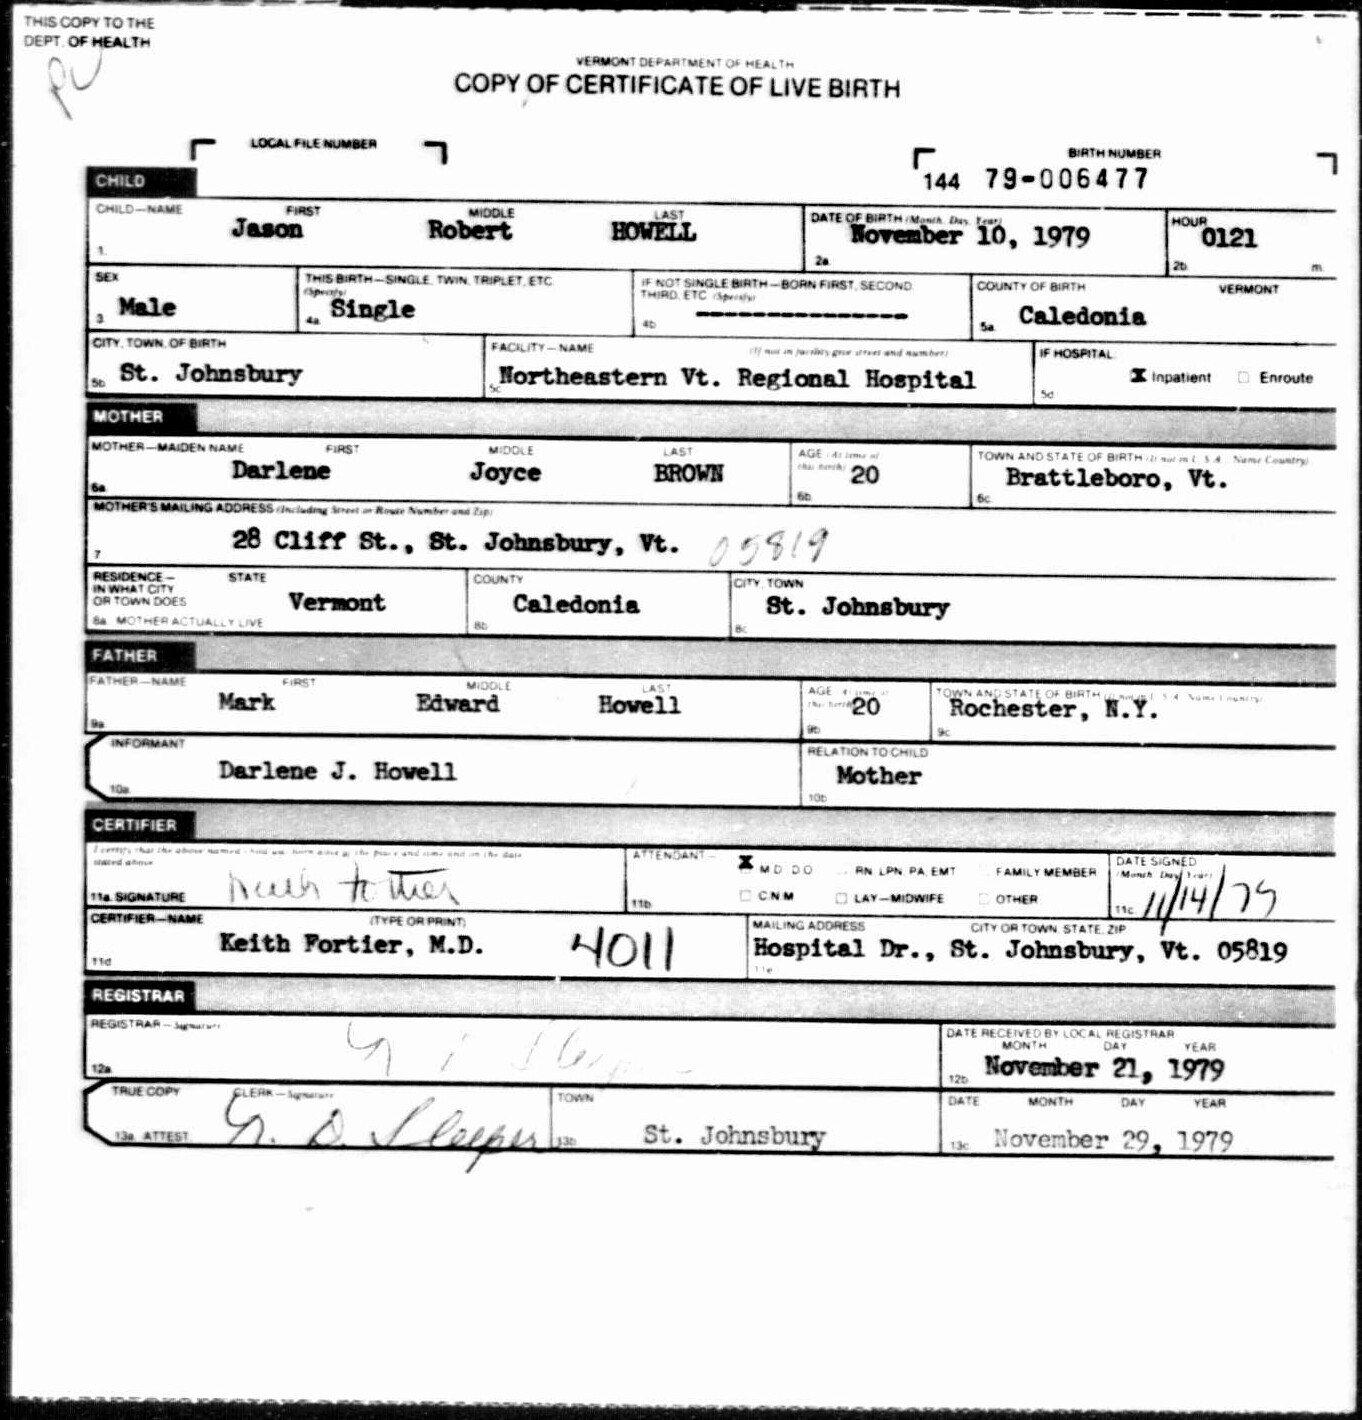 THIS COPY TO THE
DEPT. OF HEALTH
VERMONT DEPARTMENT OF HEALTH
COPY OF CERTIFICATE OF LIVE BIRTH
LOCAL FILE NUMBER
BIRTH NUMBER
144 79-006477
CHILD
CHILD—NAME FIRST MIDDLE LAST DATE OF BIRTH (Month, Day, Year) HOUR
1. Jason Robert HOWELL 2a. November 10, 1979 2b. 0121 m.
SEX THIS BIRTH—SINGLE, TWIN, TRIPLET, ETC. (Specify) IF NOT SINGLE BIRTH—BORN FIRST, SECOND, THIRD, ETC. (Specify) COUNTY OF BIRTH VERMONT
3. Male 4a. Single 4b. --------------- 5a. Caledonia
CITY, TOWN, OF BIRTH FACILITY—NAME (If not in facility give street and number) IF HOSPITAL:
5b. St. Johnsbury 5c. Northeastern Vt. Regional Hospital 5d. X Inpatient Enroute
MOTHER
MOTHER—MAIDEN NAME FIRST MIDDLE LAST AGE (At time of this birth) TOWN AND STATE OF BIRTH (If not in U.S.A., Name Country)
6a. Darlene Joyce BROWN 6b. 20 6c. Brattleboro, Vt.
MOTHER'S MAILING ADDRESS (Including Street or Route Number and Zip)
7 28 Cliff St., St. Johnsbury, Vt. 05819
RESIDENCE— STATE COUNTY CITY, TOWN
IN WHAT CITY
OR TOWN DOES Vermont Caledonia St. Johnsbury
8a. MOTHER ACTUALLY LIVE 8b. 8c.
FATHER
FATHER—NAME FIRST MIDDLE LAST AGE (At time of this birth) TOWN AND STATE OF BIRTH (If not in U.S.A., Name Country)
9a. Mark Edward Howell 9b. 20 9c. Rochester, N.Y.
INFORMANT RELATION TO CHILD
10a. Darlene J. Howell 10b. Mother
CERTIFIER
I certify that the above named child was born alive at the place and time and on the date stated above. ATTENDANT— X M.D. D.O. RN, LPN, PA, EMT FAMILY MEMBER DATE SIGNED (Month, Day, Year)
11a. SIGNATURE Keith Fortier 11b. C.N.M. LAY—MIDWIFE OTHER 11c. 11/14/79
CERTIFIER—NAME (TYPE OR PRINT) MAILING ADDRESS CITY OR TOWN, STATE, ZIP
11d Keith Fortier, M.D. 4011 11e Hospital Dr., St. Johnsbury, Vt. 05819
REGISTRAR
REGISTRAR—Signature DATE RECEIVED BY LOCAL REGISTRAR
MONTH DAY YEAR
12a. Sleeper 12b. November 21, 1979
TRUE COPY CLERK—Signature TOWN DATE MONTH DAY YEAR
13a. ATTEST: D. Sleeper 13b. St. Johnsbury 13c. November 29, 1979